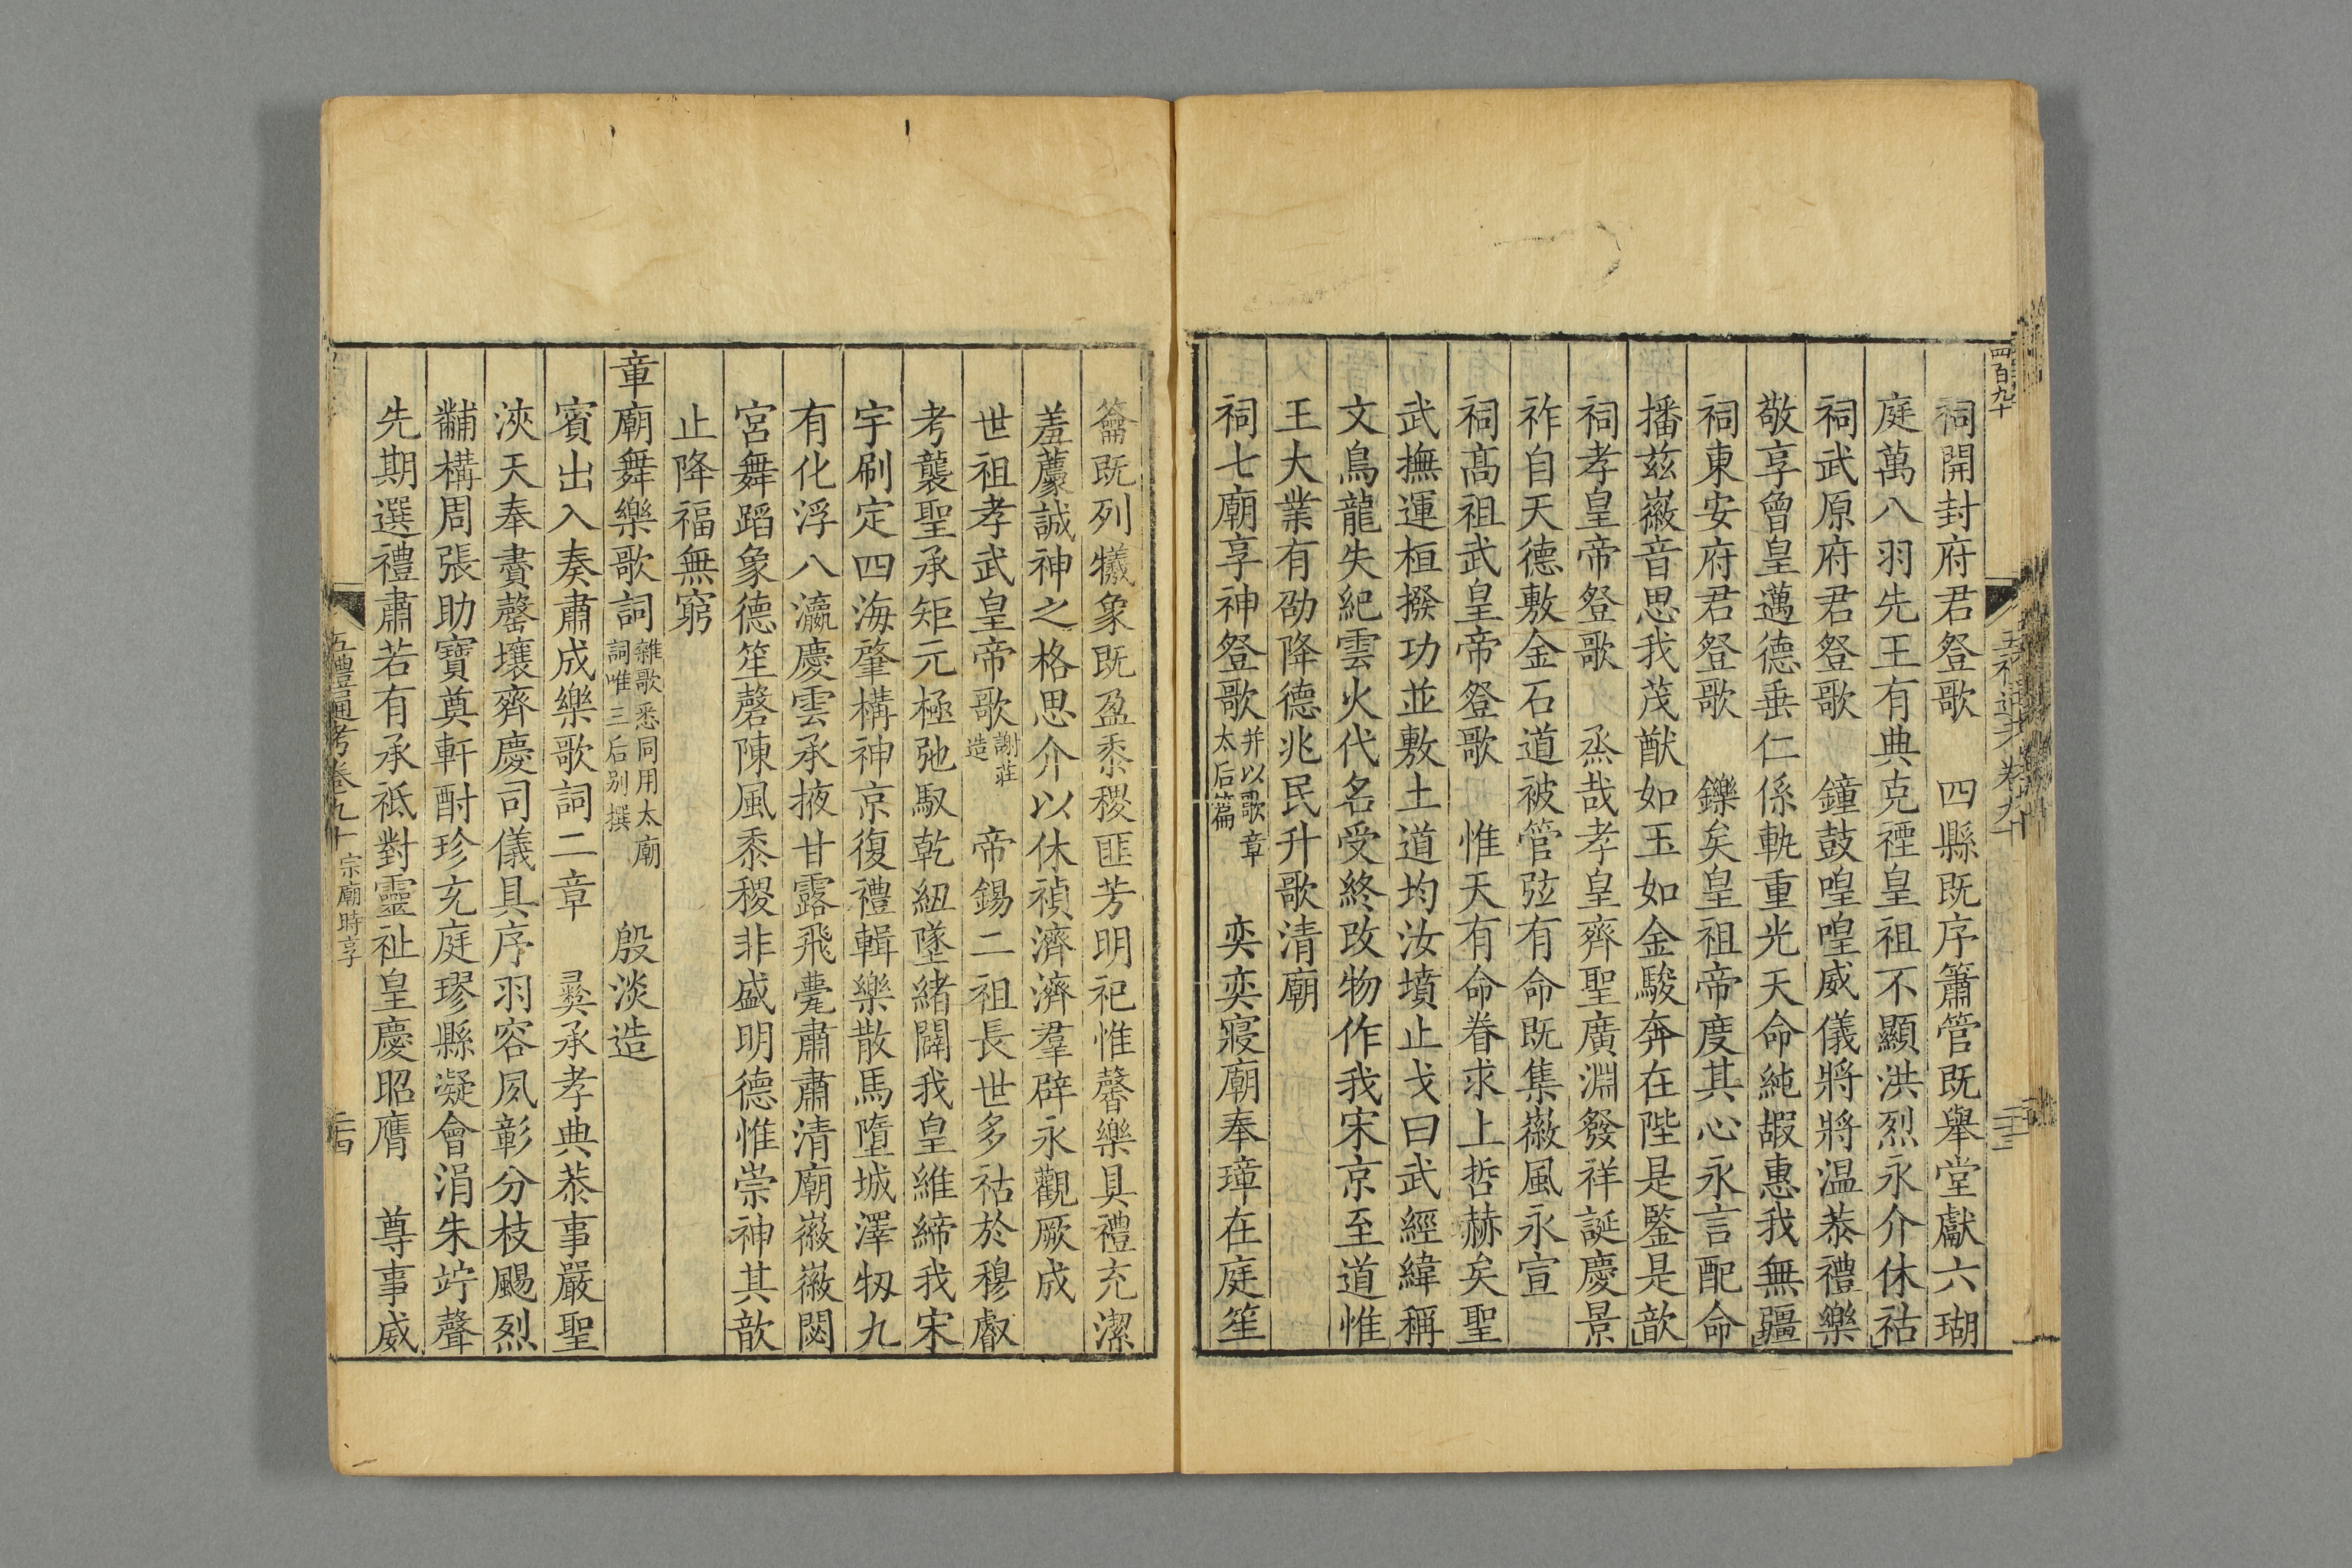 四百九十
祠開封府君登歌　四縣既序簫管既舉堂獻六瑚
庭萬八羽先王有典克禋皇祖不顯洪烈永介休祜
祠武原府君登歌　鐘鼓喤喤威儀將將温恭禮樂
敬享曾皇邁德垂仁係軌重光天命純嘏惠我無疆
祠東安府君登歌　鑠矣皇祖帝度其心永言配命
播兹徽音思我茂猷如玉如金駿奔在陛是鑒是歆
祠孝皇帝登歌　烝哉孝皇齊聖廣淵發祥誕慶景
祚自天德敷金石道被管弦有命既集徽風永宣
祠髙祖武皇帝登歌　惟天有命眷求上哲赫矣聖
武撫運桓撥功並敷土道均汝墳止戈曰武經緯稱
文鳥龍失紀雲火代名受終改物作我宋京至道惟
王大業有劭降德兆民升歌清廟
祠七廟享神登歌并以歌章太后篇　奕奕寢廟奉璋在庭笙
籥既列犧象既盈黍稷匪芳明祀惟馨樂具禮充潔
羞薦誠神之格思介以休禎濟濟羣辟永觀厥成
世祖孝武皇帝歌謝莊造　帝錫二祖長世多祜於穆叡
考襲聖承矩元極弛馭乾紐墜緒闢我皇維締我宋
宇刷定四海肇構神京復禮輯樂散馬墮城澤牣九
有化浮八瀛慶雲承掖甘露飛甍肅肅清廟徽徽閟
宮舞蹈象德笙磬陳風黍稷非盛明德惟崇神其歆
止降福無窮
章廟舞樂歌詞雜歌悉同用太廟詞唯三后别撰　殷淡造
賓出入奏肅成樂歌詞二章　彝承孝典恭事嚴聖
浹天奉賮罄壤齊慶司儀具序羽容夙彰分枝颺烈
黼構周張助寶奠軒酎珍充庭璆縣凝會涓朱竚聲
先期選禮肅若有承祗對靈祉皇慶昭膺　尊事威
五禮通考卷九十　宗廟時享